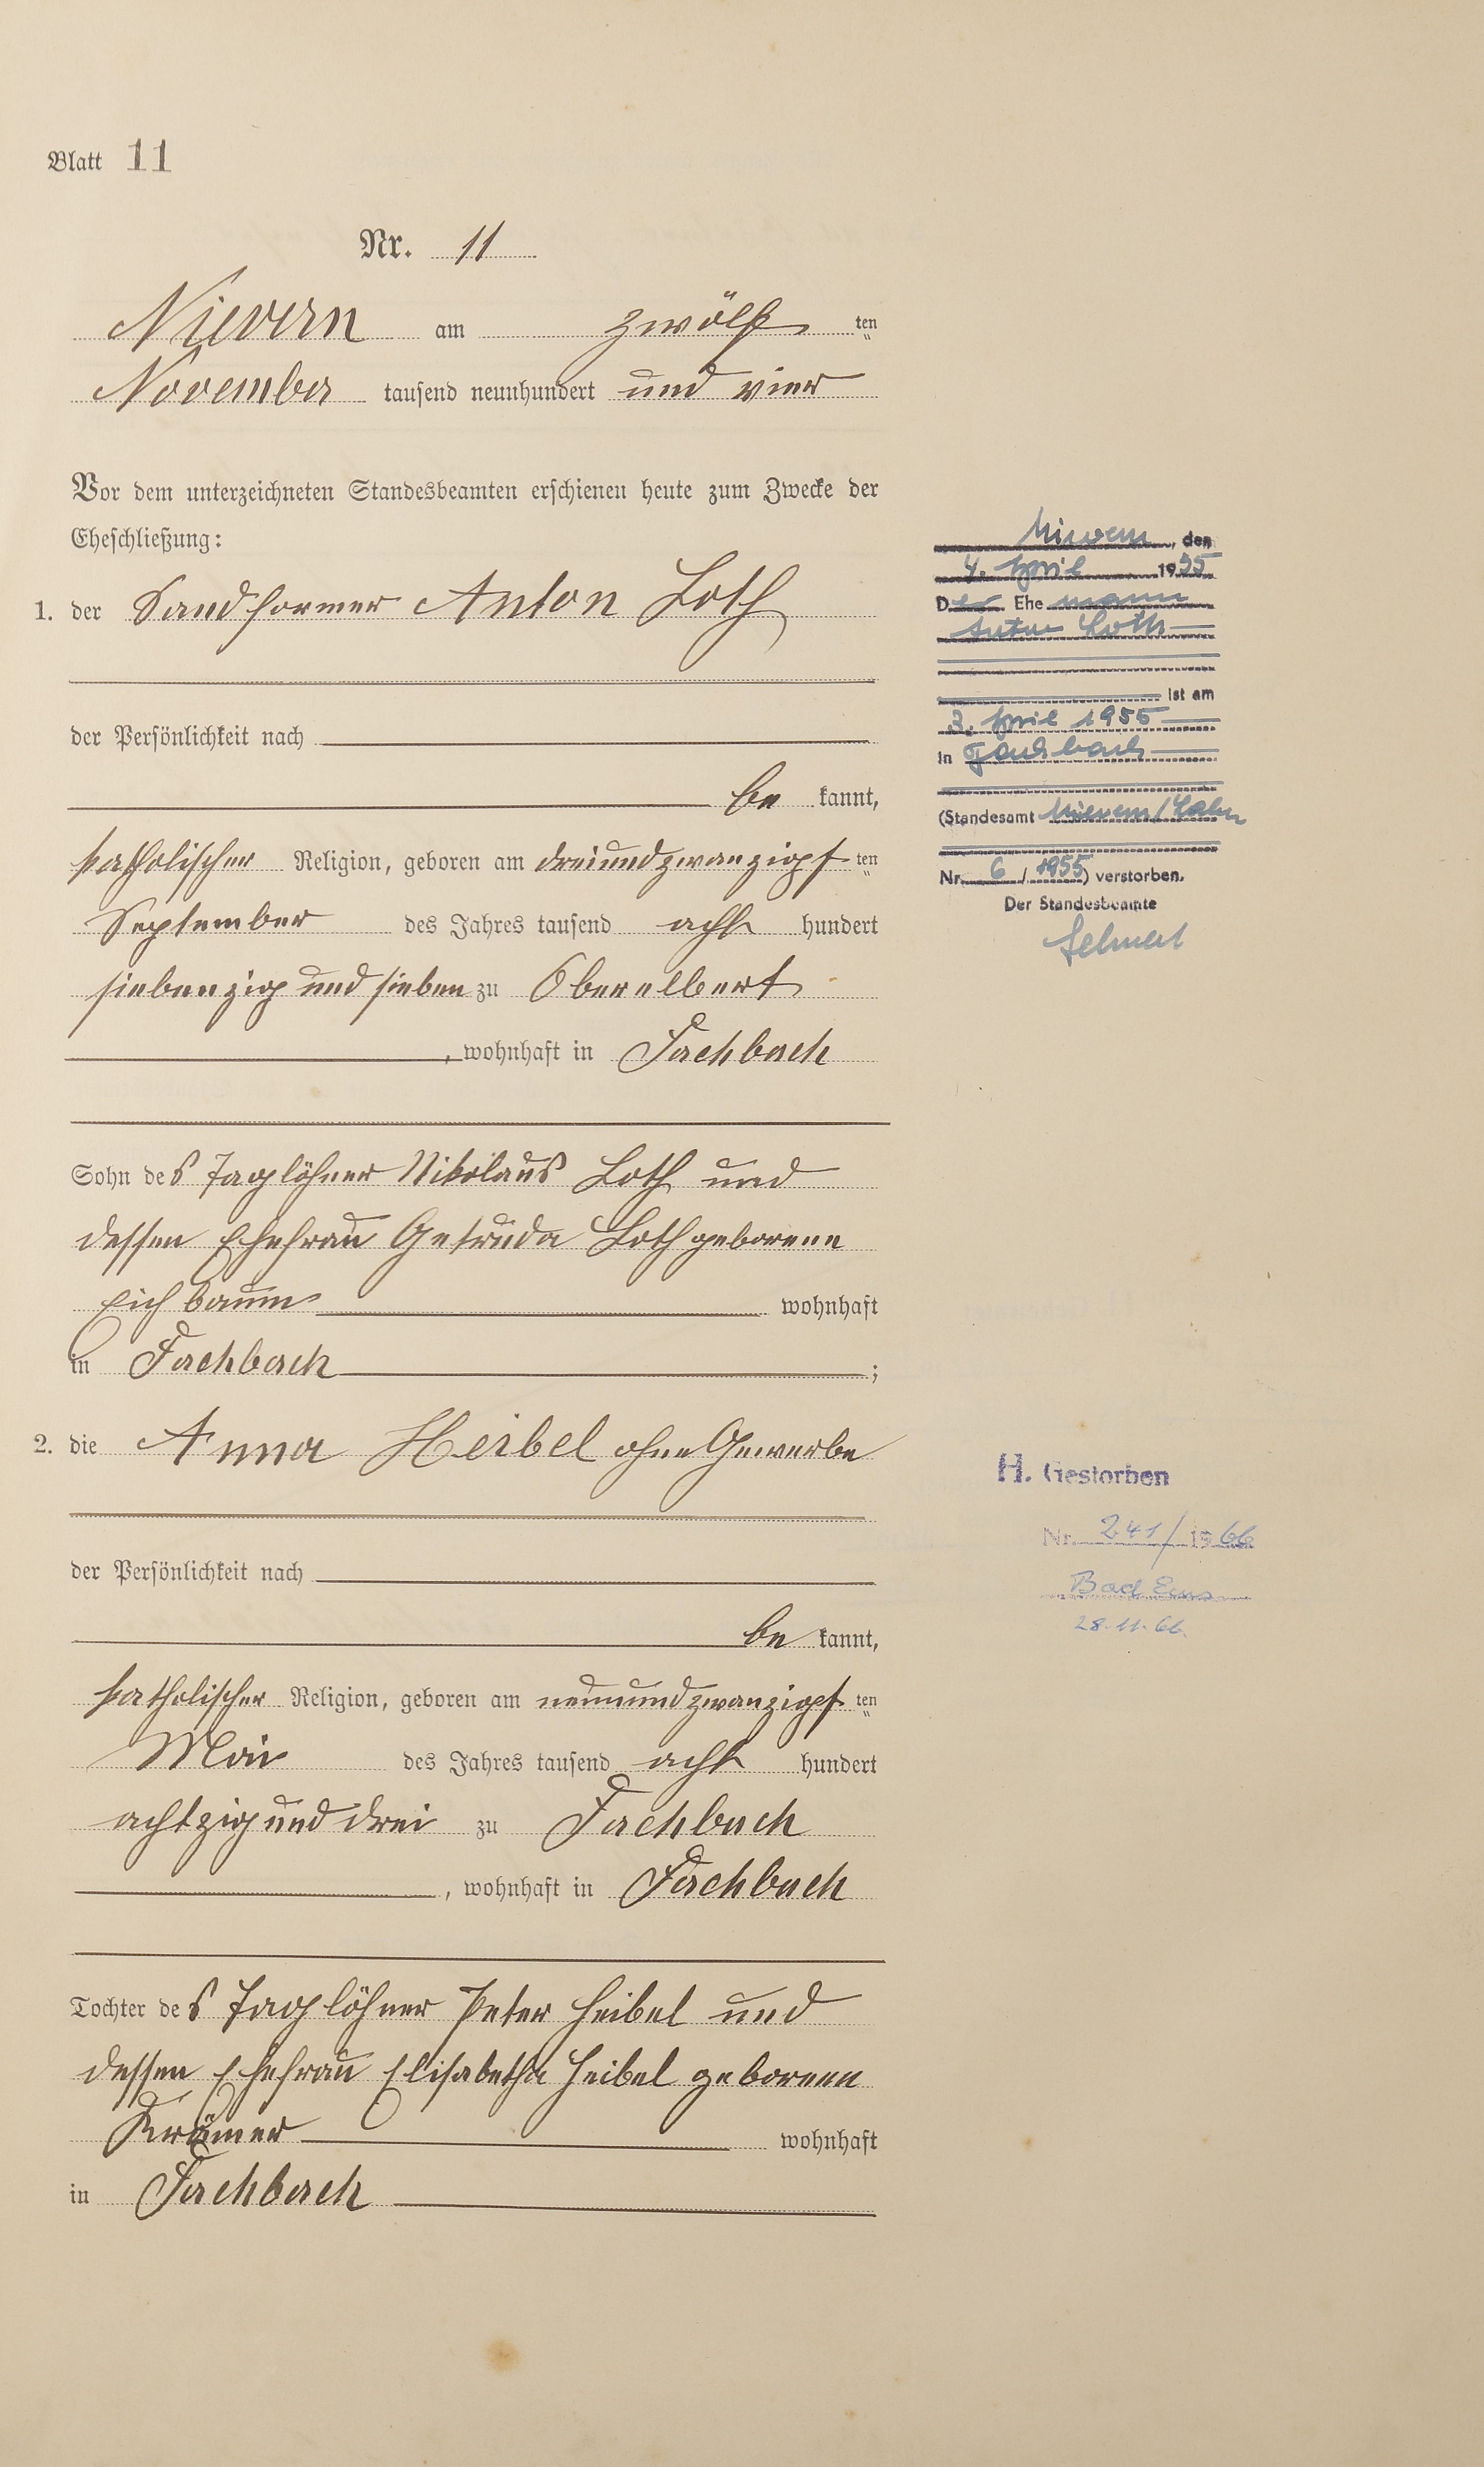 Blatt 11
Nr. 11
Nievern am zwölf ten
November tausend neunhundert und vier
Vor dem unterzeichneten Standesbeamten erschienen heute zum Zwecke der
Eheschließung:
1. der Sandformer Anton Loth
der Persönlichkeit nach
be kannt,
katholischer Religion, geboren am dreiundzwanzigst ten
September des Jahres tausend acht hundert
siebenzig und sieben zu Oberelbert
, wohnhaft in Fachbach
Sohn des Taglöhner Nikolaus Loth und
dessen Ehefrau Getruda Loth geborene
Eichbaum wohnhaft
in Fachbach ;
2. die Anna Heibel ohne Gewerbe
der Persönlichkeit nach
be kannt,
katholischer Religion, geboren am neunundzwanzigst ten
Mai des Jahres tausend acht hundert
achtzig und drei zu Fachbach
, wohnhaft in Fachbach
Tochter des Taglöhner Peter Heibel und
dessen Ehefrau Elisabetha Heibel geborene
Krämer wohnhaft
in Fachbach
Nievern, den
4. April 1955
Der Ehemann
Anton Loth
ist am
3. April 1955
in Fachbach
(Standesamt Nievern/Lahn
Nr. 6 / 1955) verstorben.
Der Standesbeamte
H. Gestorben
Nr. 241/1966
Bad Ems
28.11.66.